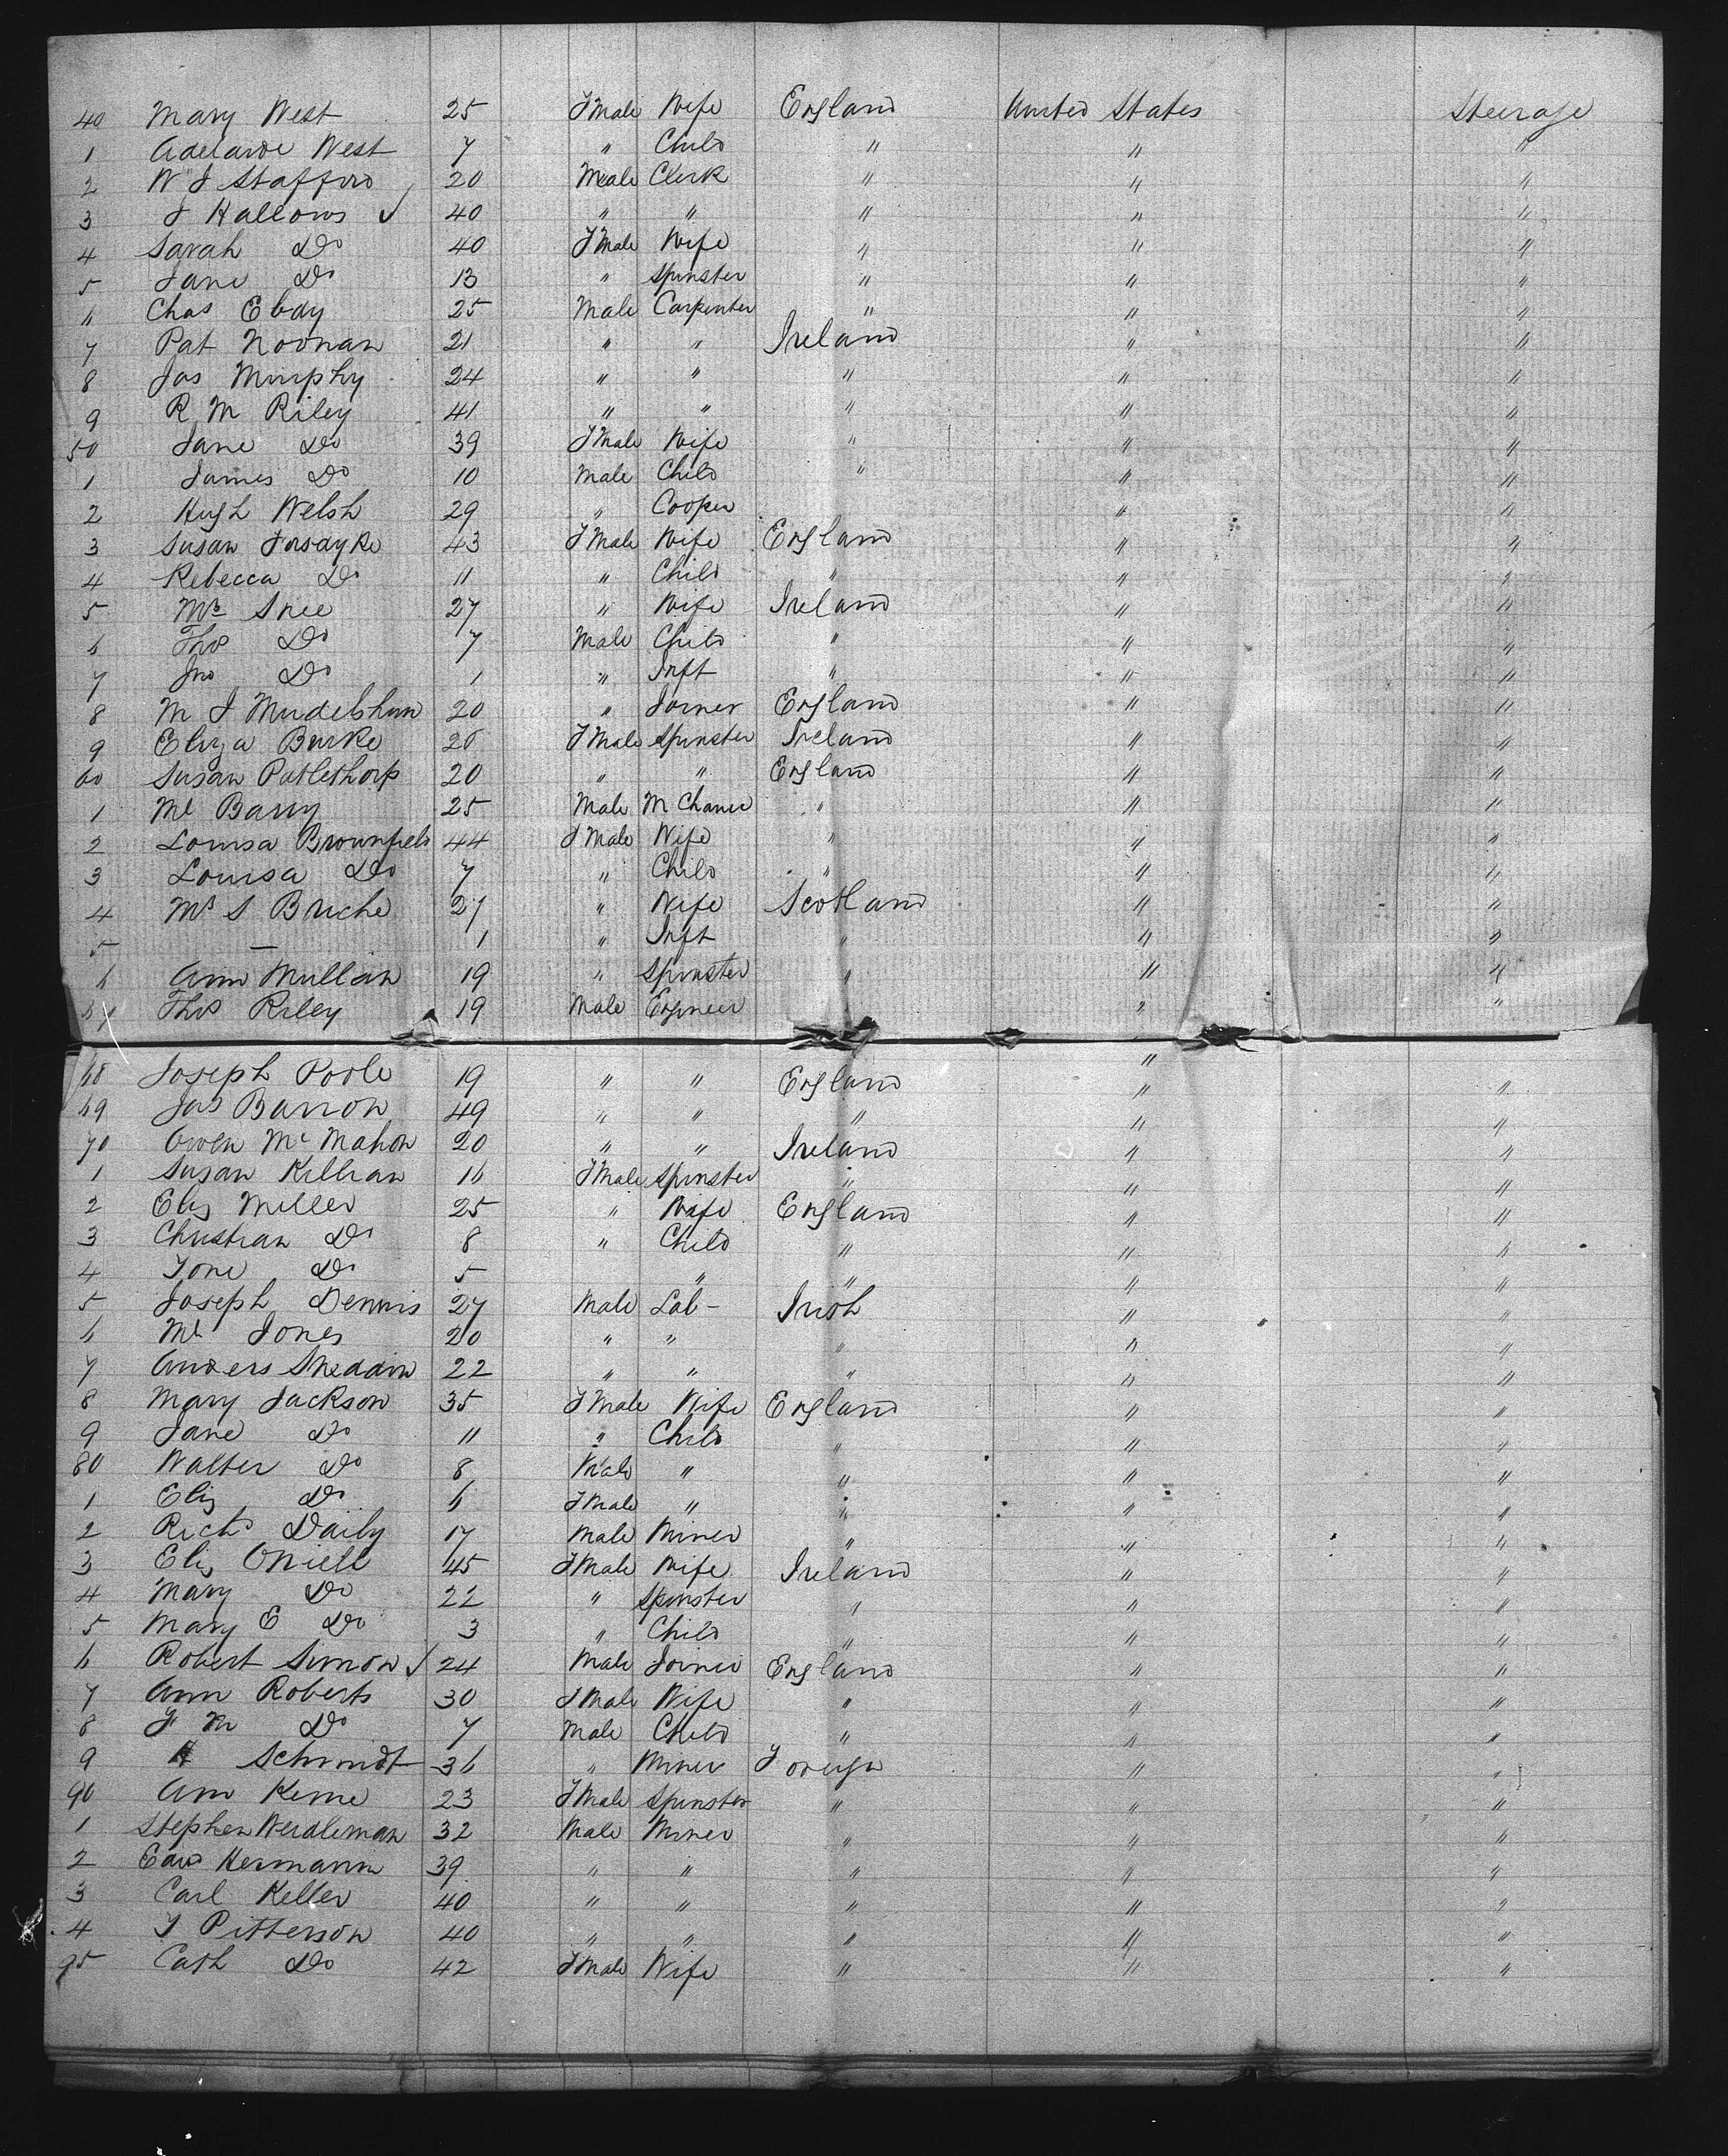 40 Mary West 25 F Male Wife England United States Steerage
1 Adelaide West 7 " Child " " "
2 W J Stafford 20 Male Clerk " " "
3 J Hallows ✓ 40 " " " " "
4 Sarah Do 40 F Male Wife " " "
5 Jane Do 13 " Spinster " " "
6 Chas Ebdy 25 Male Carpenter " " "
7 Pat Noonan 21 " " Ireland " "
8 Jas Murphy 24 " " " " "
9 R M Riley 41 " " " " "
50 Jane Do 39 F Male Wife " " "
1 James Do 10 Male Child " " "
2 Hugh Welsh 29 " Cooper " "
3 Susan Forsdyke 43 F Male Wife England " "
4 Rebecca Do 11 " Child " " "
5 Mrs Snee 27 " Wife Ireland " "
6 Thos Do 7 Male Child " " "
7 Jno Do 1 " Inft " " "
8 M J 20 " Joiner England " "
9 Eliza Burke 20 F Male Spinster Ireland " "
60 Susan Patlethorp 20 " " England " "
1 Ml Barry 25 Male M Chanic " " "
2 Louisa Brownfield 44 F Male Wife " " "
3 Louisa Do 7 " Child " " "
4 Mrs S Bruche 27 " Wife Scotland " "
5 — 1 " Inft " " "
6 Ann Mullan 19 " Spinster " " "
67 Thos Riley 19 Male Engineer " "
68 Joseph Poole 19 " " England " "
69 Jas Barron 49 " " " " "
70 Owen McMahon 20 " " Ireland " "
1 Susan Killian 16 F Male Spinster " " "
2 Eliz Miller 25 " Wife England " "
3 Christian Do 8 " Child " " "
4 Tone Do 5 " " " "
5 Joseph Dennis 27 Male Lab- Irish " "
6 Ml Jones 20 " " " " "
7 Anders Sneddin 22 " " " " "
8 Mary Jackson 35 F Male Wife England " "
9 Jane Do 11 " Child " " "
80 Walter Do 8 Male " " " "
1 Eliz Do 6 F Male " " " "
2 Richd Daily 17 Male Miner " " "
3 Eliz Oniell 45 F Male Wife Ireland " "
4 Mary Do 22 " Spinster " " "
5 Mary E Do 3 " Child " " "
6 Robert Simon ✓ 24 Male Joiner England " "
7 Ann Roberts 30 F Male Wife " " "
8 F M Do 7 Male Child " " "
9 H Schmidt 36 " Miner Foreign " "
90 Ann Keme 23 F Male Spinster " " "
1 Stephen Werdleman 32 Male Miner " " "
2 Edwd Hermann 39 " " " " "
3 Carl Keller 40 " " " " "
4 J Pitterson 40 " " " " "
95 Cath Do 42 F Male Wife " " "